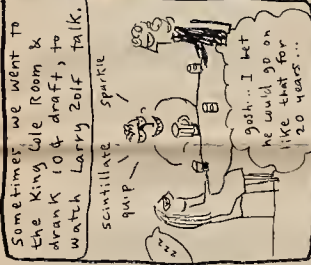 sometimes, we went to
the King Cole Room &
drank 10¢ draft, to
watch Larry Zolf talk.
scintillate sparkle
quip
gosh... I bet
he could go on
like that for
20 years...
zzz